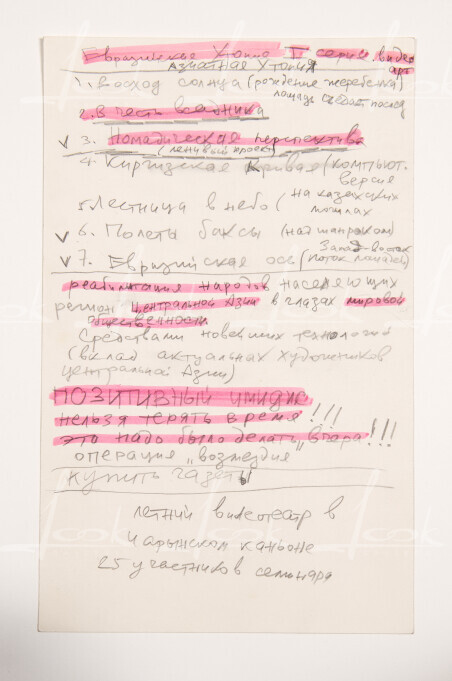 Евразийская Утопия I серия. видео арт
Азиатская Утопия
1. Восход солнца (рождение жеребенка)
лошадь съедает послед
2. В честь всадники
✓ 3. Номадическая перспектива
(ленивый проект)
4. Киргизская Кривая (компьют.
версия
5. Лестница в небо (на казахских
могилах
✓ 6. Полеты баксы (над шаныраком)
Запад-восток
✓ 7. Евразийская ось (поток лошадей)
реабилитация народов населяющих
регион Центральной Азии в глазах мировой
общественности
Средствами новейших технологий
(вклад актуальных художников
центральной Азии)
ПОЗИТИВНЫЙ имидж
нельзя терять время!!!
это надо было делать „вчера!!!
операция „возмездия
купить газеты
летний видеотеатр в
Чарынском каньоне
25 участников семинара
look